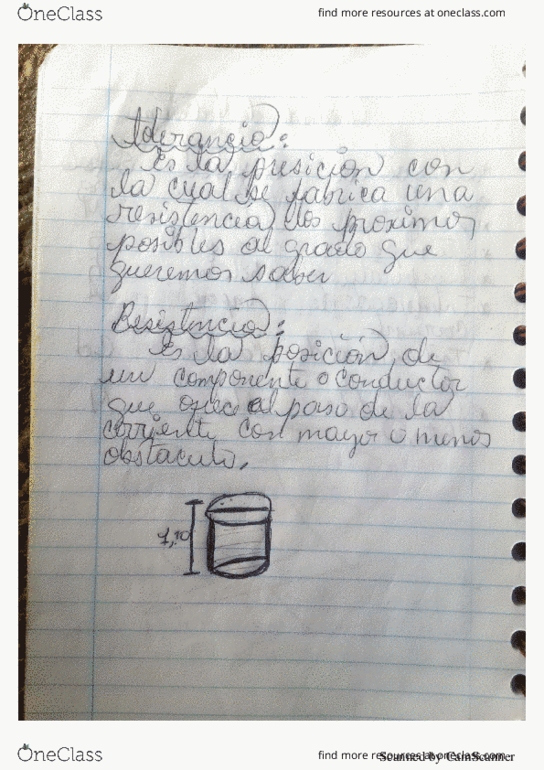 OneClass
find more resources at oneclass.com
tolerancia:
Es la presición con
la cual se fabrica una
resistencia los proximos
posibles al grado que
queremos saber
Resistencia:
Es la posición de
un componente o conductor
que ofrece al paso de la
corriente con mayor o menos
obstaculo.
OneClass
find more resources at oneclass.com
Scanned by CamScanner